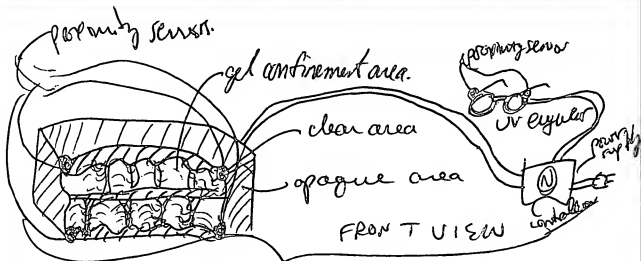 proximity sensor.
gel confinement area.
clear area
opaque area
FRONT VIEW
proximity sensor
UV eyewear
N
power
supply